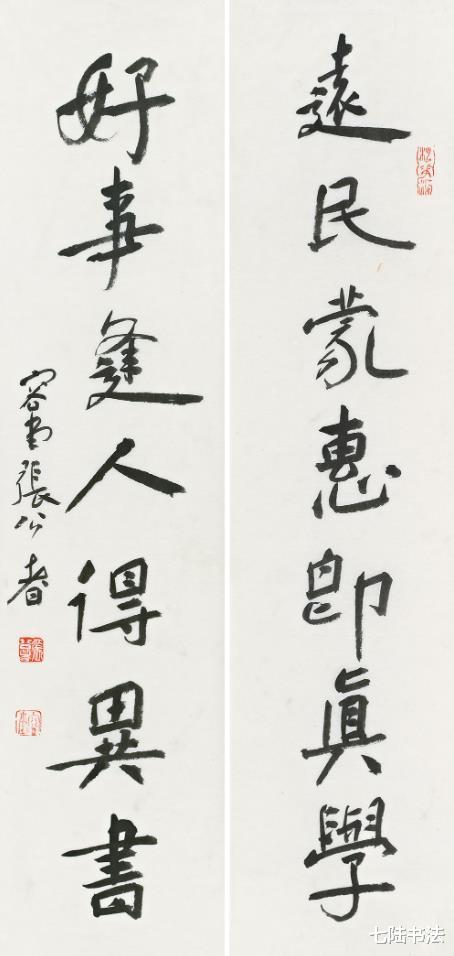 遠民蒙惠即真學
好事逢人得異書
容堂張公者
七陆书法